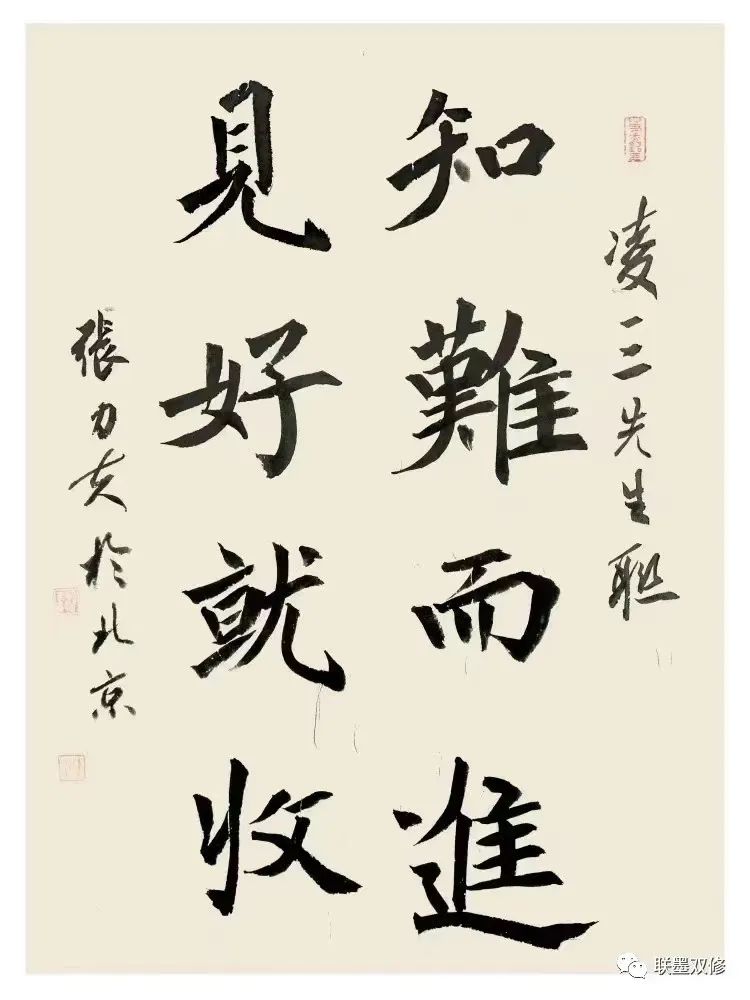 凌一三先生联
知難而進
見好就收
張力夫於北京
联墨双修